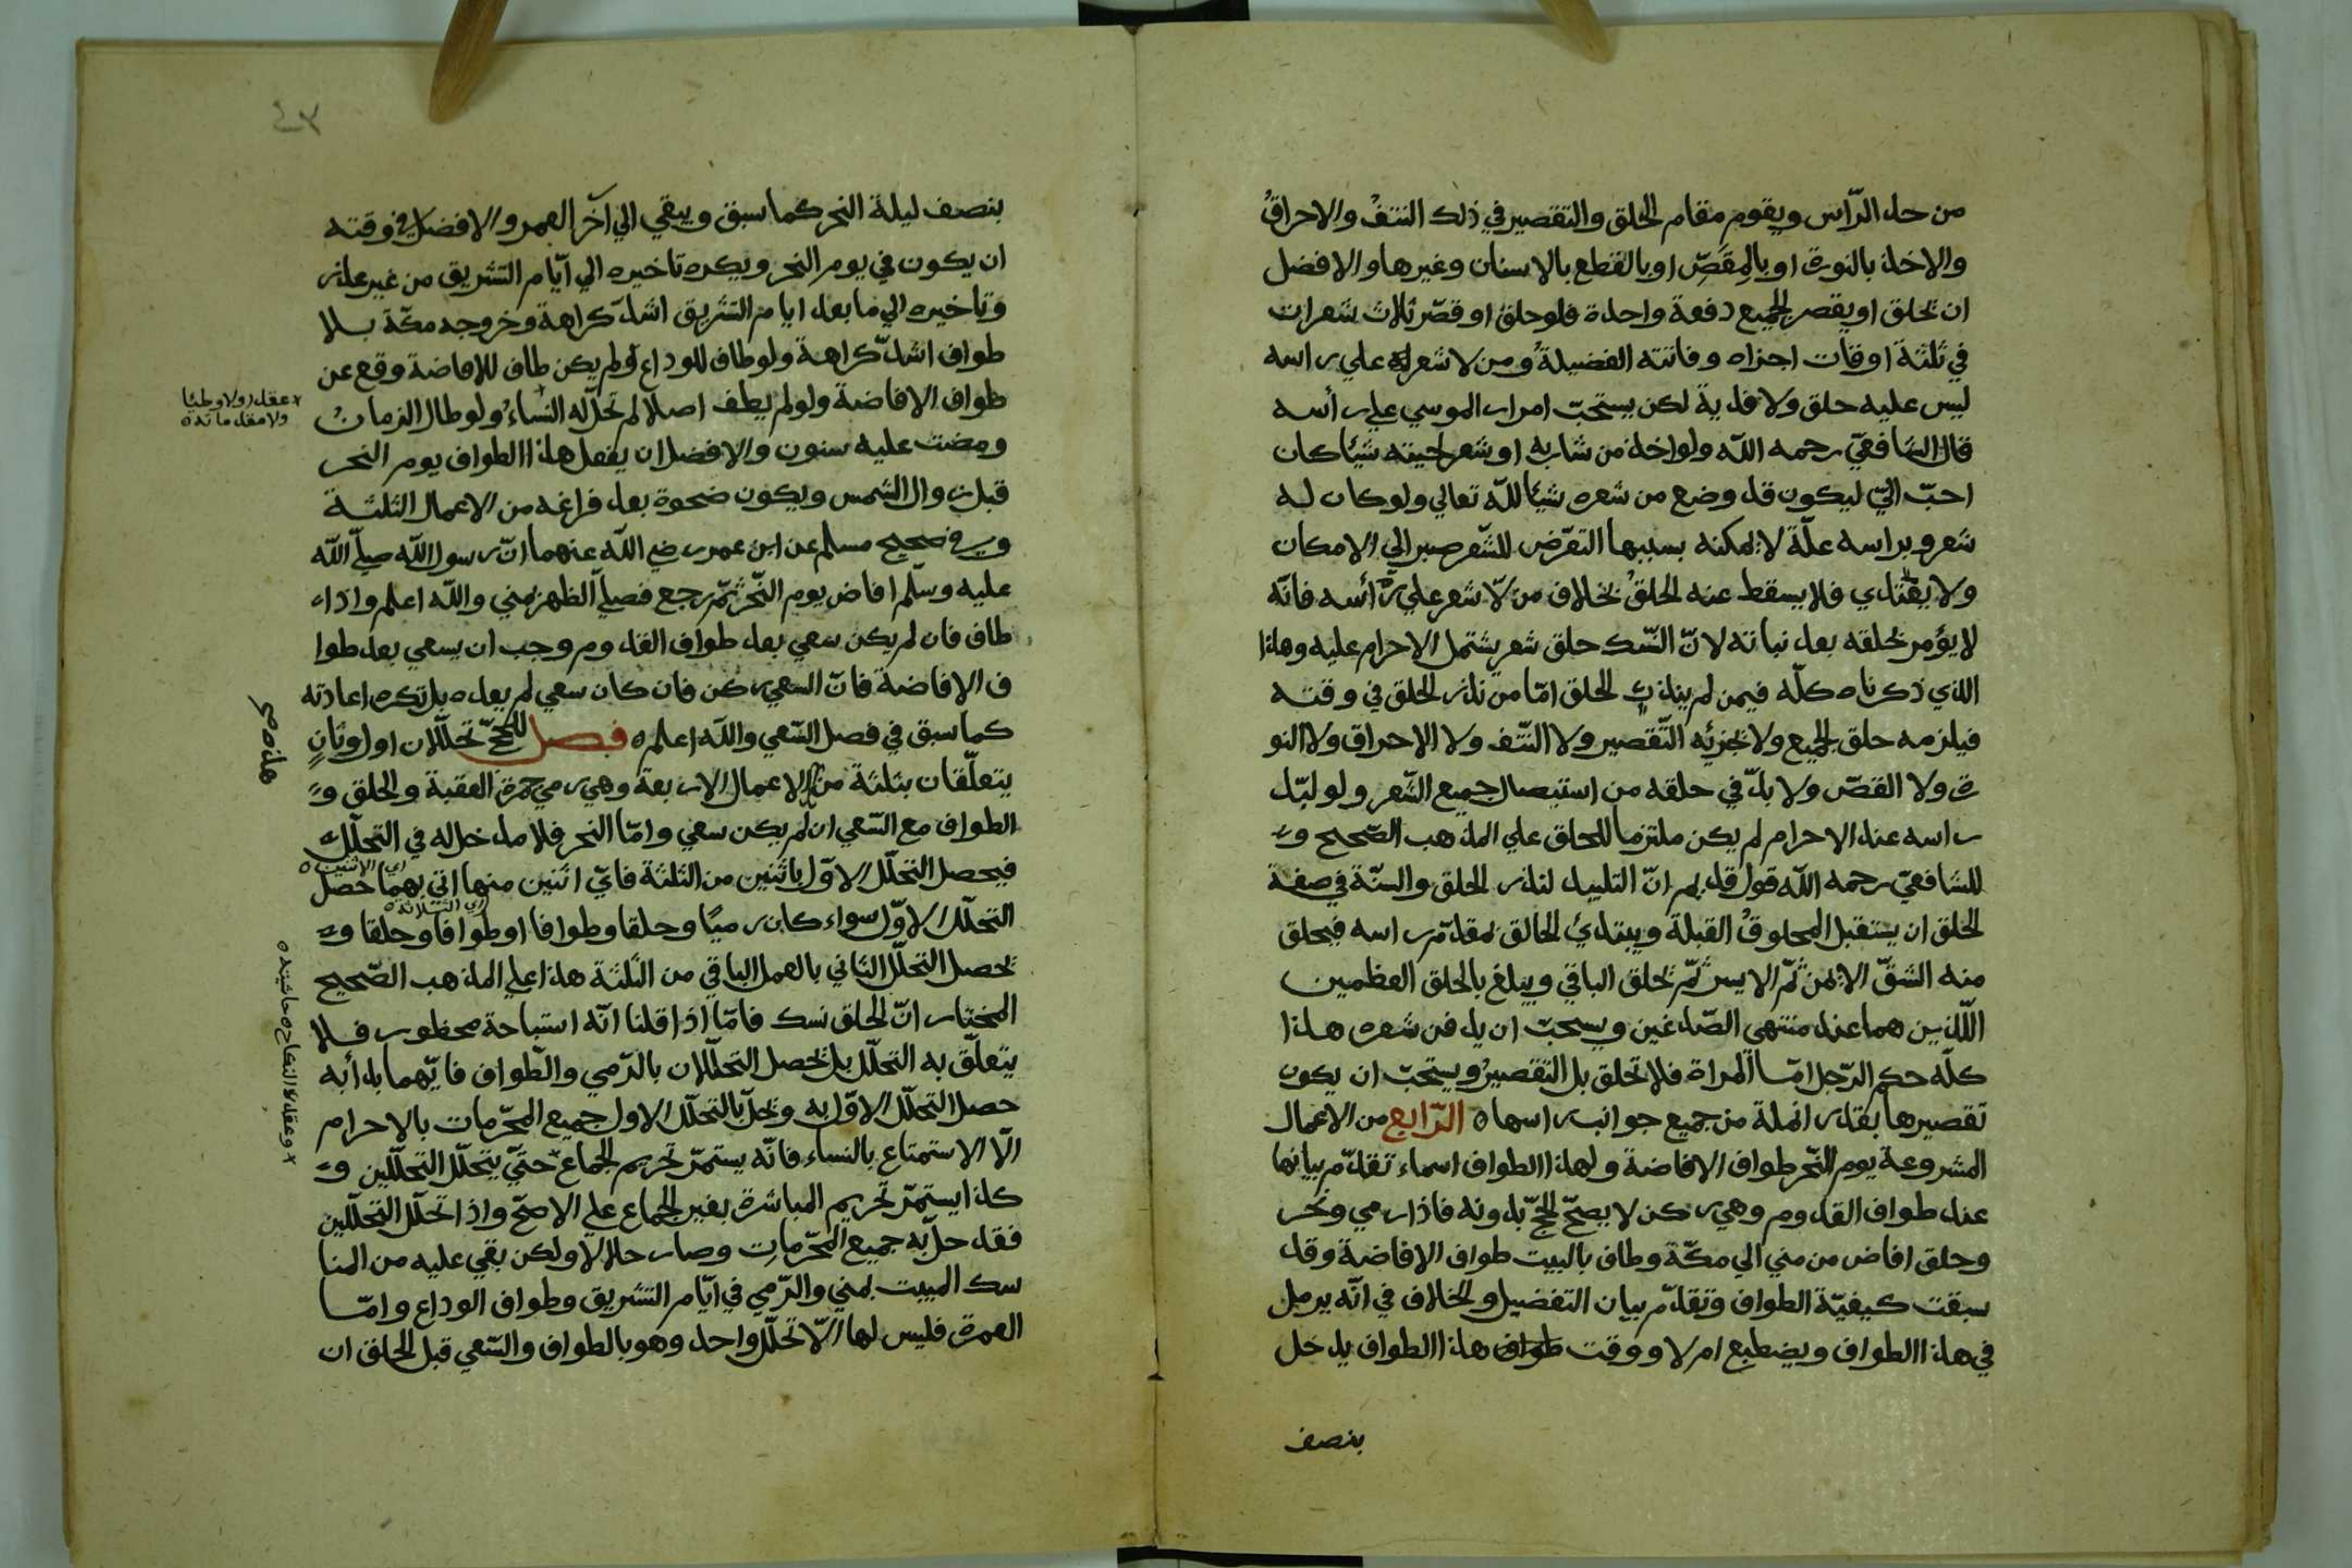 من حد الرّاس ويقوم مقام الحلق والتقصير في ذلك النتفُ والاحراقُ
والاخذ بالنورة او بالمِقَصِّ او بالقطع بالاسنان وغيرها والافضل
ان يحلق او يقصر الجميع دفعة واحدة فلو حلق او قصّر ثلاث شعرات
في ثلثة اوقات اجزاه وفاتته الفضيلةُ ومن لا شعر له علي راسه
ليس عليه حلق ولا فدية لكن يستحبّ امرار الموسي علي رأسه
قال الشافعيّ رحمه اللّه ولو اخذ من شاربه او شعر لحيته شيئا كان
احبّ اليّ ليكون قد وضع من شعره شيئا للّه تعالي ولو كان له
شعر وبراسه علّة لا يمكنه بسببها التعرّض للشّعر صبر الي الامكان
ولا يفتدي فلا يسقط عنه الحلقُ بخلاف من لّا شعر علي رأسه فانّه
لا يؤمر بحلقه بعد نباته لانّ النّسك حلق شعر يشتمل الاحرام عليه وهذا
الذي ذكرناه كلّه فيمن لم ينذر الحلق امّا من نذر الحلق في وقته
فيلزمه حلق الجميع ولا يجزئه التّقصير ولا النّتف ولا الاحراق ولا النو
رة ولا القصّ ولا بدّ في حلقه من استيصال جميع الشّعر ولو لبّد
راسه عند الاحرام لم يكن ملتزما للحلق علي المذهب الصّحيح و
للشافعيّ رحمه اللّه قول قديم انّ التلبيد لنذر الحلق والسنّة في صفة
الحلق ان يستقبل المحلوقُ القبلة ويبتدئ الحالق بمقدّم راسه فيحلق
منه الشقّ الايمن ثمّ الايسر ثمّ يحلق الباقي ويبلغ بالحلق العظمين
اللّذين هما عند منتهى الصّدغين ويستحبّ ان يدفن شعره هذا
كلّه حكم الرّجل امّا المراة فلا تحلق بل التقصيرُ ويستحبّ ان يكون
تقصيرها بقدر انملة من جميع جوانب راسها ه الرّابع من الاعمال
المشروعة يوم النّحر طواف الافاضة ولهذا الطواف اسماء تقدّم بيانها
عند طواف القدوم وهي ركن لا يصحّ الحجّ بدونه فاذا رمي ونحر
وحلق افاض من مني الي مكّة وطاف بالبيت طواف الافاضة وقد
سبقت كيفيّة الطواف وتقدّم بيان التفضيل والخلاف في انّه يرمل
في هذا الطواف ويضطبع ام لا ووقت طواف هذا الطواف يدخل
بنصف
٤٣
بنصف ليلة النحر كما سبق ويبقي الي آخر العمر والافضل في وقته
ان يكون في يوم النحر ويكره تاخيره الي ايّام التشريق من غير عذر
وتاخيره الي ما بعد ايام التشريق اشدّ كراهة وخروجه مكّة بلا
طواف اشدّ كراهة ولو طاف للوداع ولم يكن طاف للافاضة وقع عن
طواف الافاضة ولو لم يطف اصلا لم تحلّ له النّساءُ ولو طال الزمانُ
x عقدا ولا وطيًا
ولا مقدماته ه
ومضت عليه سنون والافضل ان يفعل هذا الطواف يوم النحر
قبل زوال الشمس ويكون ضحوة بعد فراغه من الاعمال الثلثة
وفي صحيح مسلم عن ابن عمر رضي اللّه عنهما انّ رسول اللّه صلّي اللّه
عليه وسلّم افاض يوم النّحر ثمّ رجع فصلّي الظهر بمني واللّه اعلم واذا
طاف فان لم يكن سعي بعد طواف القدوم وجب ان يسعي بعد طوا
ف الافاضة فانّ السعي ركن فان كان سعي لم يعده بل تكره اعادته
كما سبق في فصل السّعي واللّه اعلم ه فصل للحجّ تحلّلان اول وثانٍ
يتعلّقان بثلثة من الاعمال الاربعة وهي رمي جمرة العقبة والحلق و
الطواف مع السّعي ان لم يكن سعي وامّا النحر فلا مدخل له في التحلّل
فيحصل التحلّل الاوّل باثنين من الثلثة فايّ اثنين منها اتي بهما حصل
اي الاثنين ه
التحلّل الاوّل سواء كان رميًا وحلقا وطوافا او طوافا وحلقا و
اي الثلاثة ه
يحصل التحلّل الثاني بالعمل الباقي من الثلثة هذا علي المذهب الصّحيح
المختار انّ الحلق نسك فامّا اذا قلنا انّه استباحة محظور فلا
يتعلّق به التحلّل بل يحصل التحلّلان بالرّمي والطّواف فايّهما بدأ به
حصل التحلّل الاوّل به ويحلّ بالتحلّل الاول جميع المحرّمات بالاحرام
الّا الاستمتاع بالنساء فانّه يستمرّ تحريم الجماع حتّي يتحلّل التحلّلين و
x وعقد النكاح ه حاشيه ه
كذا يستمرّ تحريم المباشرة بغير الجماع علي الاصحّ واذا تحلّل التحلّلين
فقد حلّ به جميع المحرّماتِ وصار حلالا ولكن بقي عليه من المنا
سك المبيت بمني والرّمي في ايّام التشريق وطواف الوداع وامّا
العمرة فليس لها الّا تحلّل واحد وهو بالطواف والسّعي قبل الحلق ان